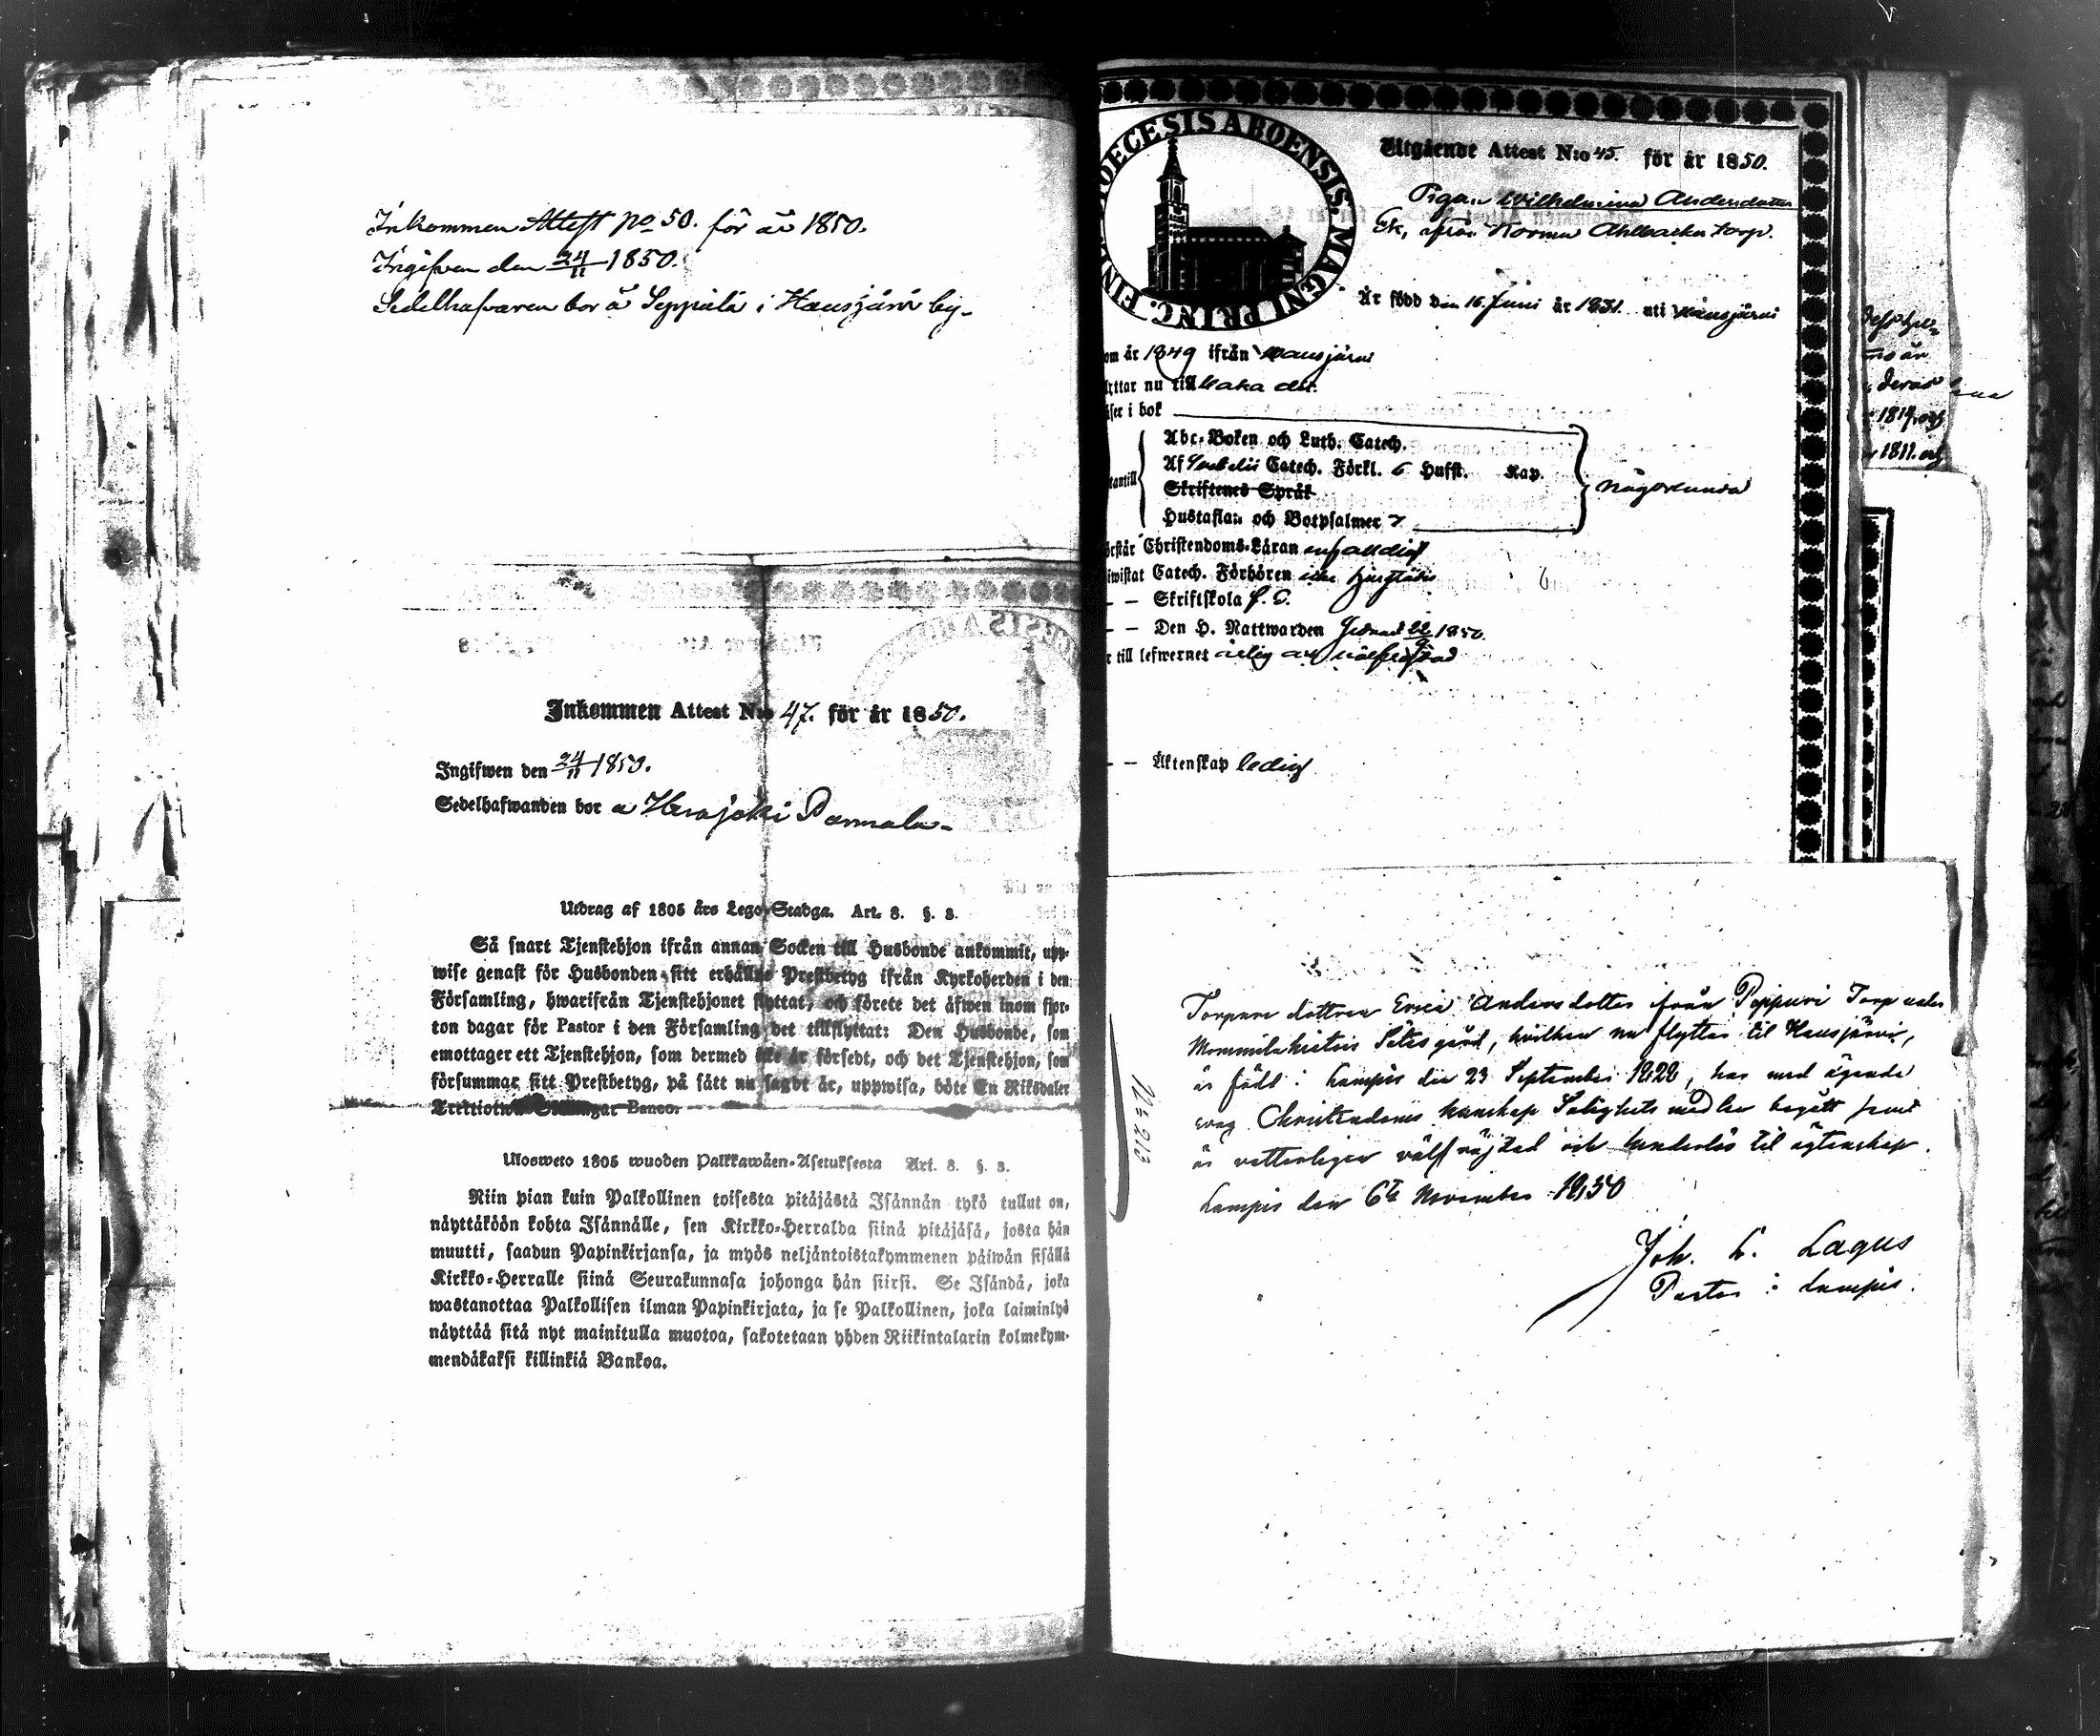 Inkommen Attest No 50. för år 1850.
Ingifven den 24/11 1850.
Sedelhafvaren bor å Seppälä i Hausjärvi by.
Inkommen Attest N:o 47. för år 1850.
Ingifwen den 24/11 1850.
Sedelhafwanden bor å Herajoki Parmala.
Utdrag af 1805 års Lego-Stadga. Art. 8. §. 3.
Så snart Tjenstehjon ifrån annan Socken till Husbonde ankommit, upp-
wise genast för Husbonden sitt erhållne Prestbetyg ifrån Kyrkoherden i den
Församling, hwarifrån Tjenstehjonet flyttat, och förete det äfwen inom fjor-
ton dagar för Pastor i den Församling det tillflyttat: Den Husbonde, som
emottager ett Tjenstehjon, som dermed icke är försedt, och det Tjenstehjon, som
försummar sitt Prestbetyg, på sätt nu sagdt är, uppwisa, böte En Riksdaler
Trettiotwå Skillingar Banco.
Ulosweto 1805 wuoden Palkkawäen-Asetuksesta Art. 8. §. 3.
Niin pian kuin Palkollinen toisesta pitäjästä Isännän tykö tullut on,
näyttäköön kohta Isännälle, sen Kirkko-Herralda siinä pitäjäsä, josta hän
muutti, saadun Papinkirjansa, ja myös neljäntoistakymmenen päiwän sisällä
Kirkko-Herralle siinä Seurakunnasa johonga hän siirsi. Se Isändä, joka
wastanottaa Palkollisen ilman Papinkirjata, ja se Palkollinen, joka laiminlyö
näyttää sitä nyt mainitulla muotoa, sakotetaan yhden Riikintalarin kolmekym-
mendäkaksi killinkiä Bankoa.
DIOECESIS ABOENSIS. MAGNI PRINC. FINL
Utgående Attest N:o 45. för år 1850.
Pigan Wilhelmina Andersdotter
Ek, från Kormu Ahlbacka torp.
Är född den 16. Juni år 1831. uti Hausjärvi
om år 1849 ifrån Hausjärvi
lyttar nu tillbaka dit.
äser i bok
Abc-Boken och Luth. Catech.
Af Svebelii Catech. Förkl. 6 Hufst. Kap.
Skriftenes Språk
Hustaflan och Botpsalmer 7
någorlunda
örstår Christendoms-Läran enfaldigt
iwistat Catech. Förhören
— — Skriftskola
— — Den H. Nattwarden 1850.
r till lefwernet ärlig och välfrejdad
— — Äktenskap ledig
Torpare dottren Erica Andersdotter ifrån Poppuri Torp under
Mommilakietois Säteri gård, hvilken nu flyttar til Hausjärvi,
är född i Lampis den 23 September 1828, har med ägande
svag Christendoms kunskap Salighets medlen begått samt
är vetterligen välfräjdad och hinderlös til ägtenskap.
Lampis den 6te November 1850
Joh. L. Lagus
Pastor i Lampis.
No 213
1819.
1811.